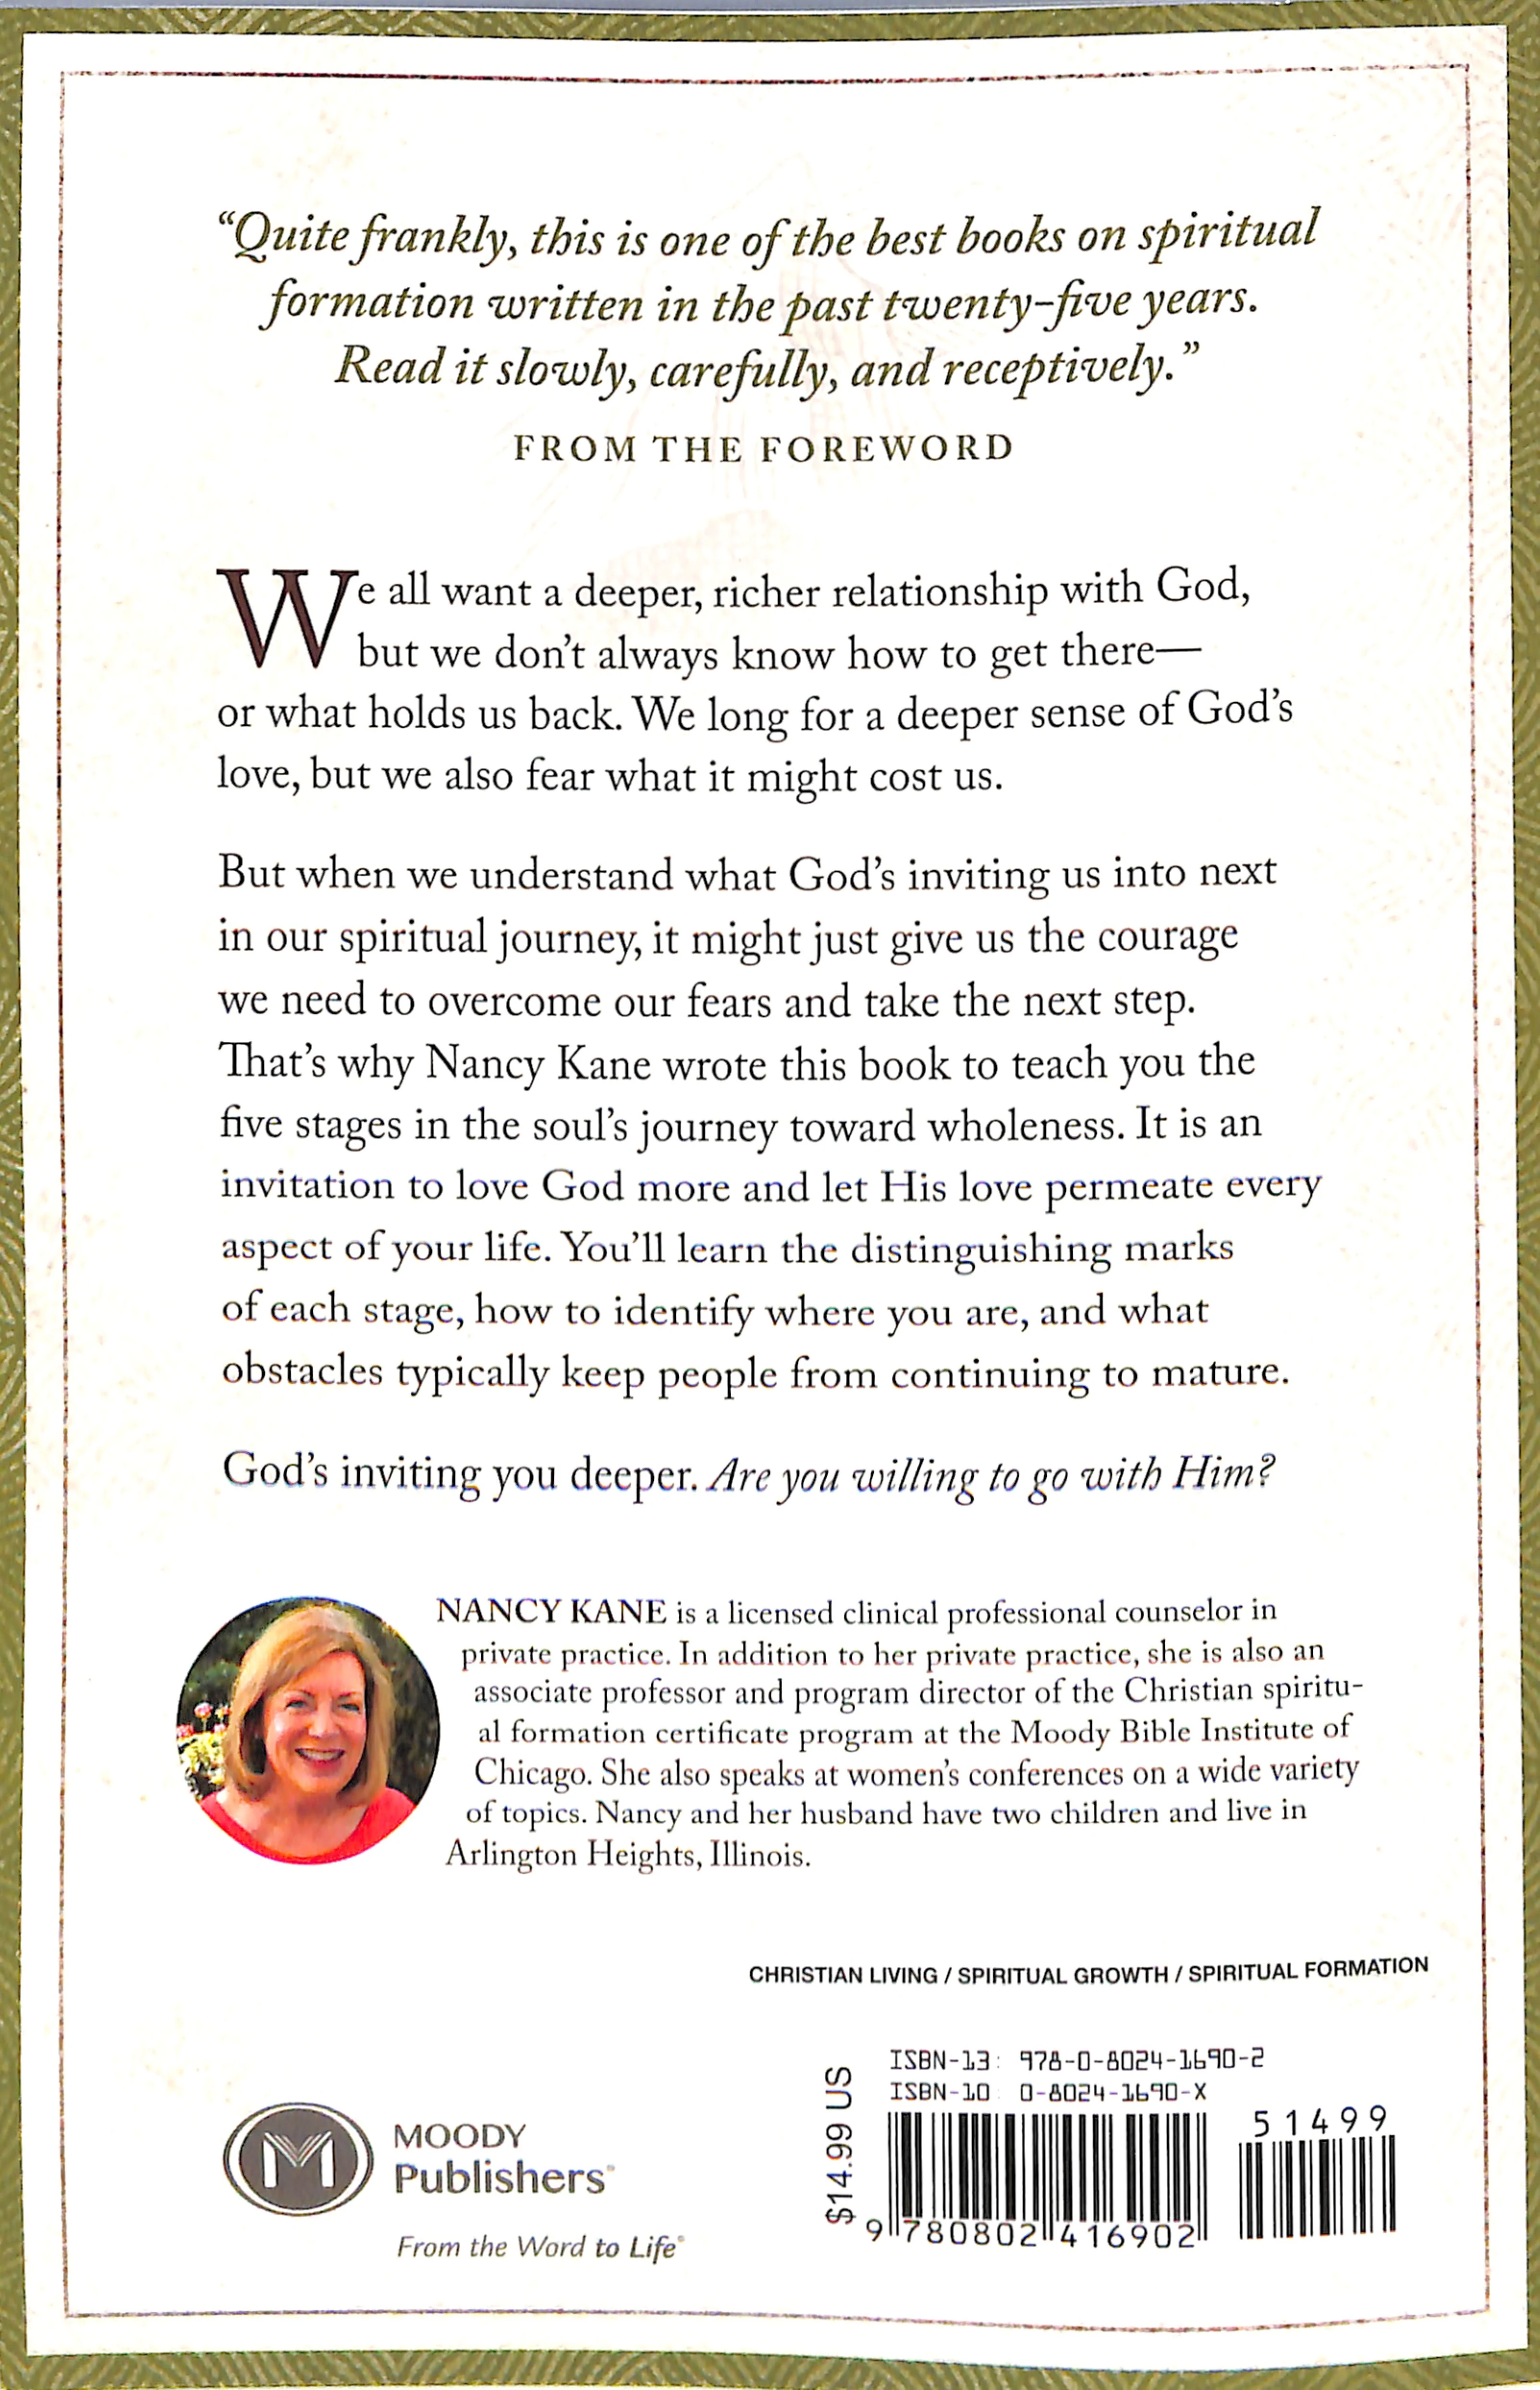 “Quite frankly, this is one of the best books on spiritual
formation written in the past twenty-five years.
Read it slowly, carefully, and receptively.”
FROM THE FOREWORD
We all want a deeper, richer relationship with God,
but we don’t always know how to get there—
or what holds us back. We long for a deeper sense of God’s
love, but we also fear what it might cost us.
But when we understand what God’s inviting us into next
in our spiritual journey, it might just give us the courage
we need to overcome our fears and take the next step.
That’s why Nancy Kane wrote this book to teach you the
five stages in the soul’s journey toward wholeness. It is an
invitation to love God more and let His love permeate every
aspect of your life. You’ll learn the distinguishing marks
of each stage, how to identify where you are, and what
obstacles typically keep people from continuing to mature.
God’s inviting you deeper. Are you willing to go with Him?
NANCY KANE is a licensed clinical professional counselor in
private practice. In addition to her private practice, she is also an
associate professor and program director of the Christian spiritu-
al formation certificate program at the Moody Bible Institute of
Chicago. She also speaks at women’s conferences on a wide variety
of topics. Nancy and her husband have two children and live in
Arlington Heights, Illinois.
CHRISTIAN LIVING / SPIRITUAL GROWTH / SPIRITUAL FORMATION
MOODY
Publishers®
From the Word to Life®
$14.99 US
ISBN-13: 978-0-8024-1690-2
ISBN-10 0-8024-1690-X
51499
9 780802 416902